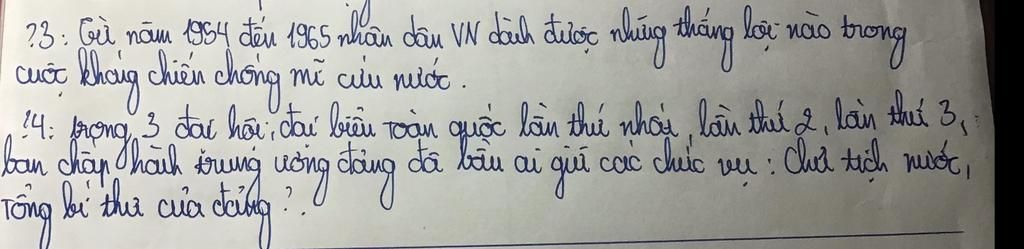 ?3: Từ năm 1954 đến 1965 nhân dân VN dành được những thắng lợi nào trong
cuộc kháng chiến chống mĩ cứu nước.
?4: trong 3 đại hội, đại biểu toàn quốc lần thứ nhất, lần thứ 2, lần thứ 3,
ban chấp hành trung ương đảng đã bầu ai giữ các chức vụ: Chủ tịch nước,
Tổng bí thư của đảng?.